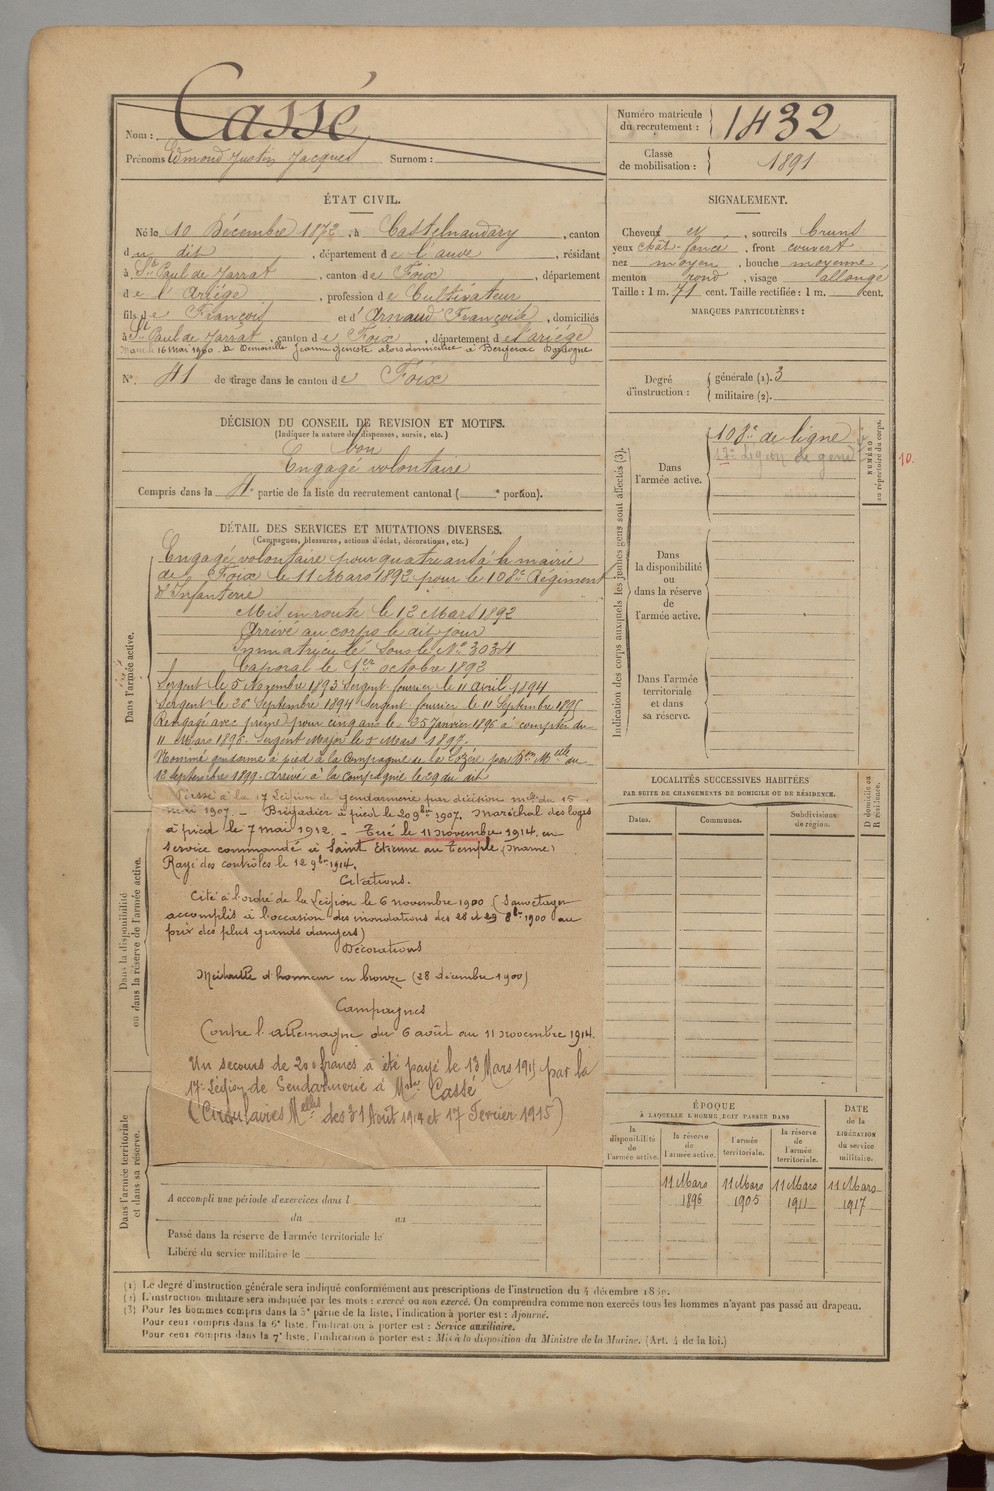 Nom : Cassé
Prénoms Edmond Justin Jacques Surnom :
Numéro matricule du recrutement : 1432
Classe de mobilisation : 1891
ÉTAT CIVIL.
Né le 10 Décembre 1872, à Castelnaudary, canton
du dit, département de l'aude, résidant
à St Paul de Jarrat, canton de Foix, département
de l'Ariège, profession de Cultivateur
fils de François et d'Arnaud Françoise, domiciliés
à St Paul de Jarrat, canton de Foix, département de l'ariège
Marié le 16 Mai 1900 à Demoiselle Jeanne alors domiciliée à Bergerac Dordogne
N°. 41 de tirage dans le canton de Foix
SIGNALEMENT.
Cheveux et, sourcils bruns
yeux chât-foncé, front couvert
nez moyen, bouche moyenne
menton rond, visage allongé
Taille : 1 m. 71 cent. Taille rectifiée : 1 m. cent.
MARQUES PARTICULIÈRES :
Degré d'instruction : générale (1). 3
militaire (2).
DÉCISION DU CONSEIL DE REVISION ET MOTIFS.
(Indiquer la nature des dispenses, sursis, etc.)
bon
Engagé volontaire
Compris dans la 4e partie de la liste du recrutement cantonal ( e portion).
DÉTAIL DES SERVICES ET MUTATIONS DIVERSES.
(Campagnes, blessures, actions d'éclat, décorations, etc.)
Dans l'armée active.
Engagé volontaire pour quatre ans à la mairie
de Foix le 11 Mars 1892 pour le 108e Régiment
d'Infanterie
Mis en route le 12 Mars 1892
Arrivé au corps le dit jour
Immatriculé sous le N° 3034
Caporal le 1er octobre 1892
Sergent le 5 Novembre 1893 Sergent fourrier le 11 avril 1894
Sergent le 26 Septembre 1894 Sergent fourrier le 11 Septembre 1895
Rengagé avec prime pour cinq ans le 25 Janvier 1896 à compter du
11 Mars 1896. Sergent Major le 5 Mars 1897.
Nommé gendarme à pied à la compagnie de la Lozère par Don Melle du
12 septembre 1899. arrivé à la compagnie le 29 du dit
Passé à la 17 Légion de gendarmerie par décision melle du 15
mai 1907. – Brigadier à pied le 20 9bre 1907. Maréchal des logis
à pied le 7 mai 1912. – Tué le 11 novembre 1914 en
service commandé à Saint Etienne au Temple (Marne)
Rayé des contrôles le 12 9bre 1914.
Citations.
Cité à l'ordre de la Légion le 6 novembre 1900 (Sauvetages
accomplis à l'occasion des inondations des 28 et 29 8bre 1900 au
prix des plus grands dangers)
Décorations
Médaille d'honneur en bronze (28 décembre 1900)
Campagnes
Contre l'allemagne du 6 août au 11 novembre 1914.
Un secours de 200 francs a été payé le 13 Mars 1915 par la
17e Légion de Gendarmerie à Mme Cassé
(Circulaires Melles des 31 Août 1914 et 17 Fevrier 1915)
Dans la disponibilité ou dans la réserve de l'armée active.
Dans l'armée territoriale et dans sa réserve.
A accompli une période d'exercices dans l
du au
Passé dans la réserve de l'armée territoriale le
Libéré du service militaire le
Indication des corps auxquels les jeunes gens sont affectés (3).
Dans l'armée active.
108e de ligne
17e Légion de gendie
NUMÉRO au répertoire du corps.
10.
Dans la disponibilité ou dans la réserve de l'armée active.
Dans l'armée territoriale et dans sa réserve.
LOCALITÉS SUCCESSIVES HABITÉES
PAR SUITE DE CHANGEMENTS DE DOMICILE OU DE RÉSIDENCE.
Dates. Communes. Subdivisions de région.
D domicile ou R résidence.
ÉPOQUE
À LAQUELLE L'HOMME DOIT PASSER DANS
la disponibilité de l'armée active. la réserve de l'armée active. l'armée territoriale. la réserve de l'armée territoriale.
DATE de la LIBÉRATION du service militaire.
11 Mars 11 Mars 11 Mars 11 Mars
1896 1905 1911 1917
(1) Le degré d'instruction générale sera indiqué conformément aux prescriptions de l'instruction du 4 décembre 1889.
(2) L'instruction militaire sera indiquée par les mots : exercé ou non exercé. On comprendra comme non exercés tous les hommes n'ayant pas passé au drapeau.
(3) Pour les hommes compris dans la 5e partie de la liste, l'indication à porter est : Ajourné.
Pour ceux compris dans la 6e liste, l'indication à porter est : Service auxiliaire.
Pour ceux compris dans la 7e liste, l'indication à porter est : Mis à la disposition du Ministre de la Marine. (Art. 4 de la loi.)